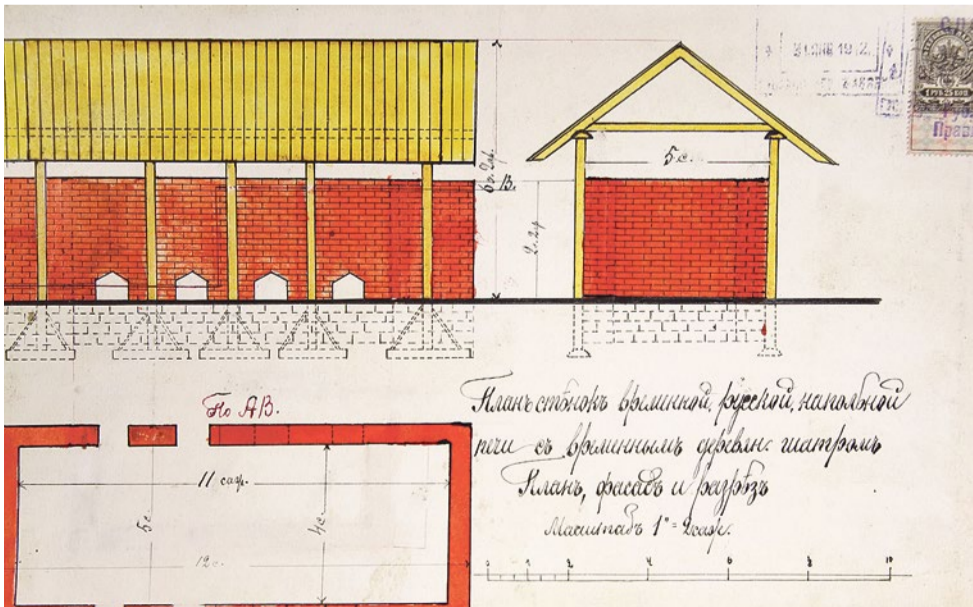 5 с.
В.
2с. 2ар
1 РУБ. 25 КОП.
По АВ.
11 саж.
5с.
4с.
12 с.
Планъ стѣнокъ временной, русской, напольной
печи съ временнымъ деревян: шатромъ
Планъ, фасадъ и разрѣзъ
Масштабъ 1" = 2 саж.
0 1 2 4 6 8 10